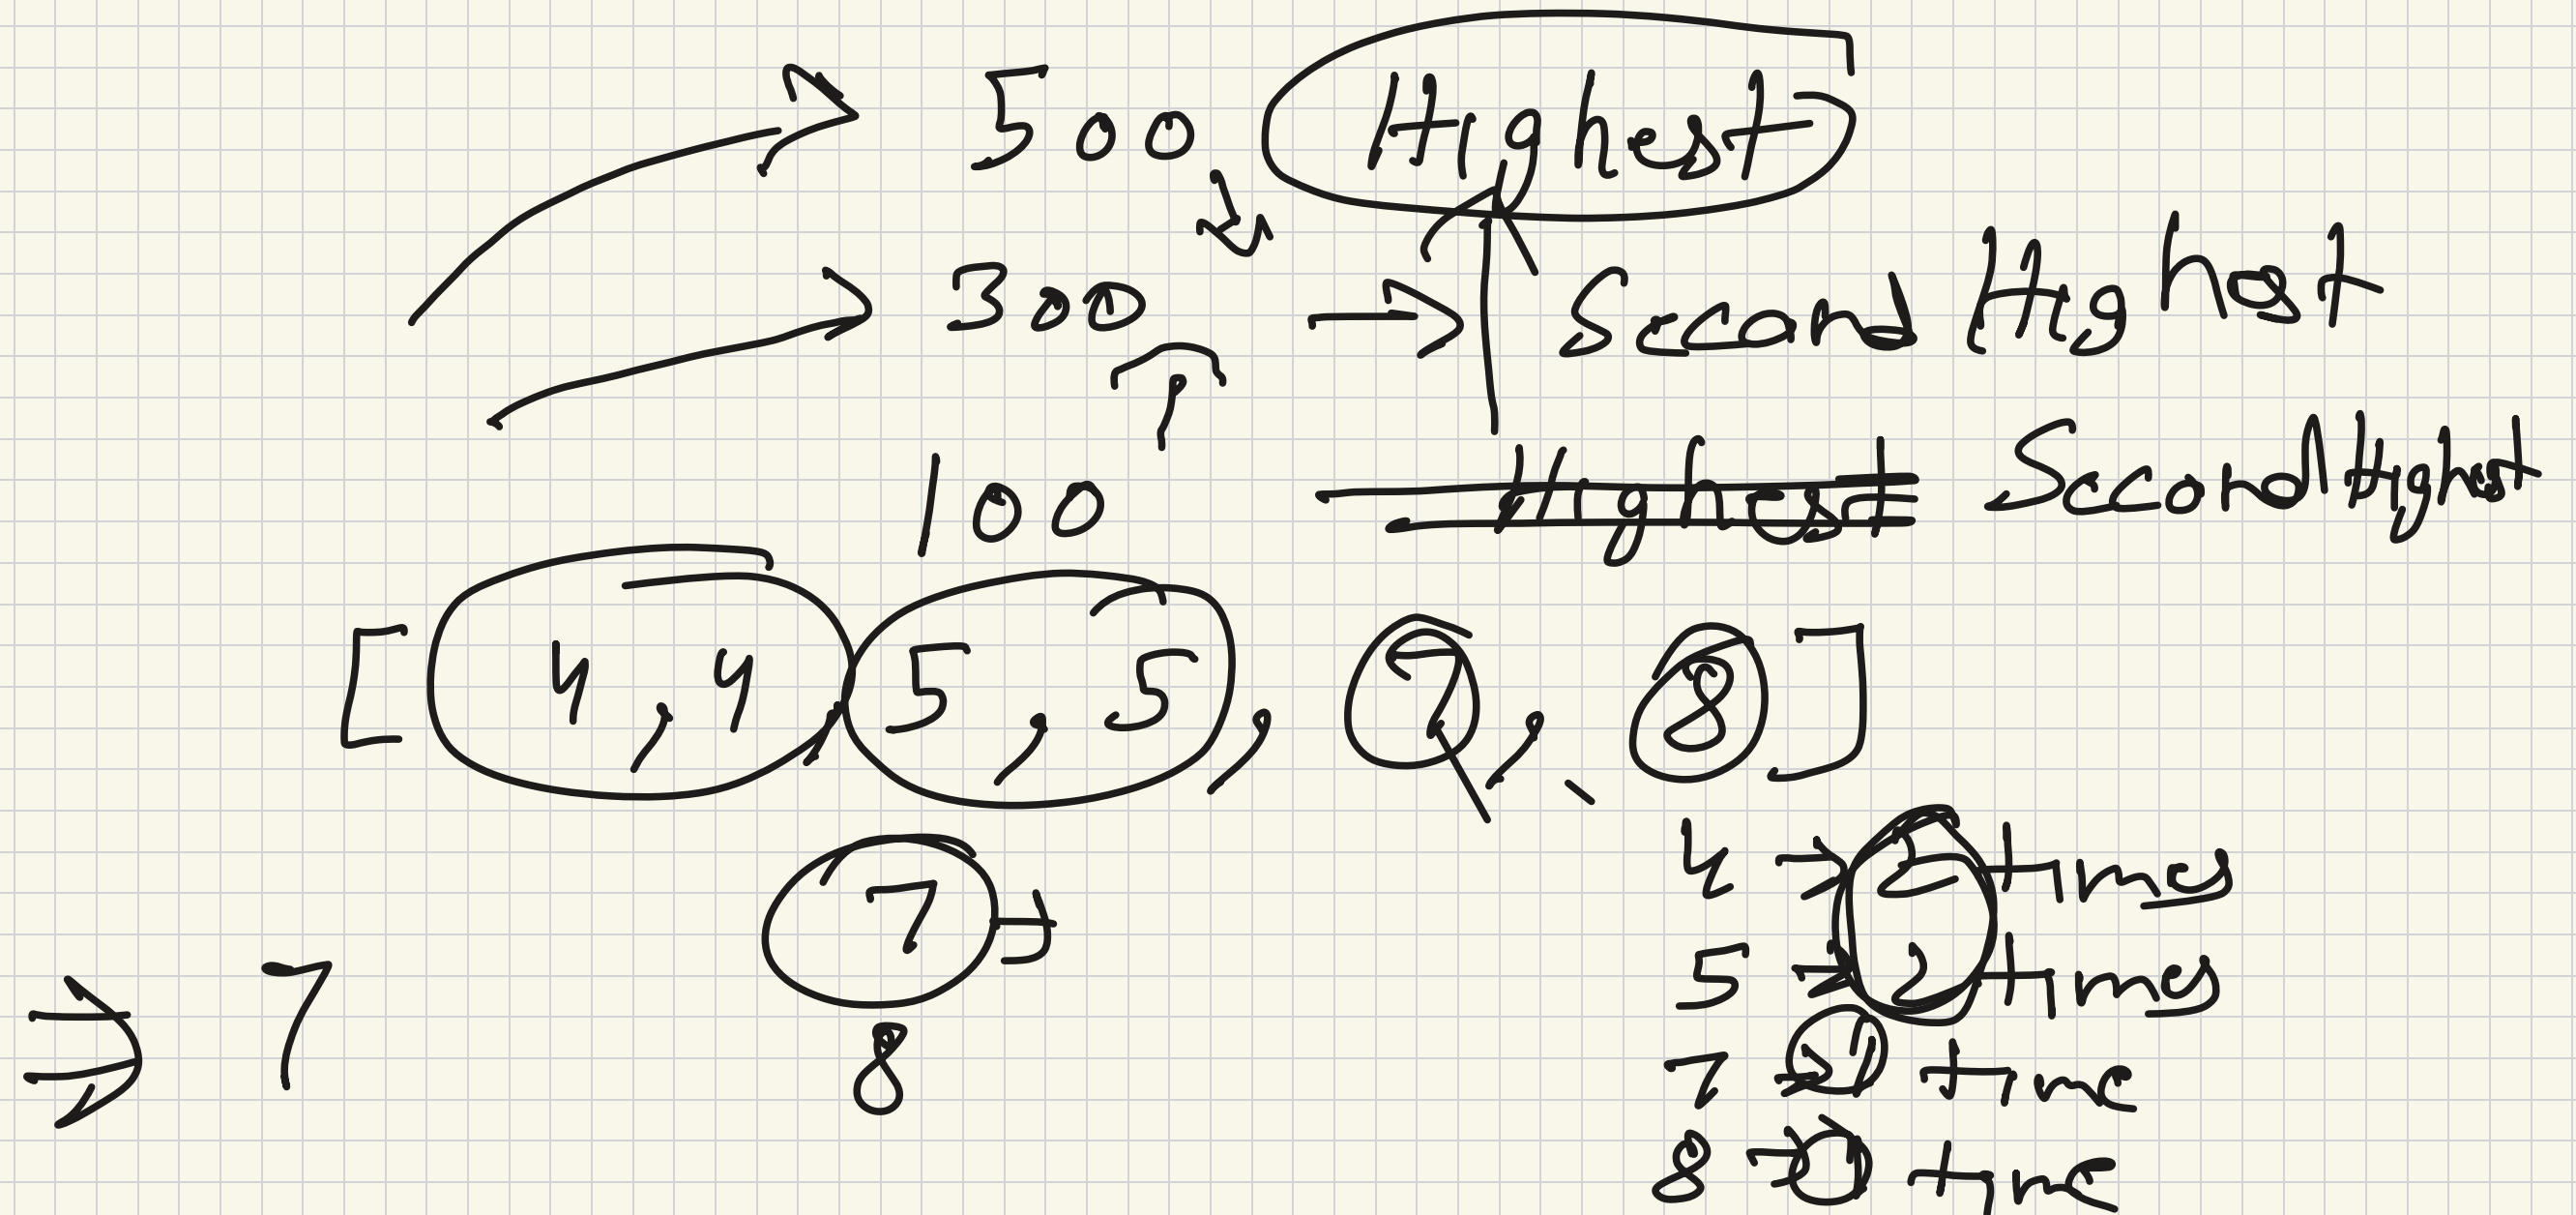 500 Highest
300 → Second Highest
100 Highest Second Highest
[4, 4, 5, 5, 7, 8]
4 → 2 times
7 5 → 2 times
⇒ 7 7 → 1 time
8 8 → 1 time